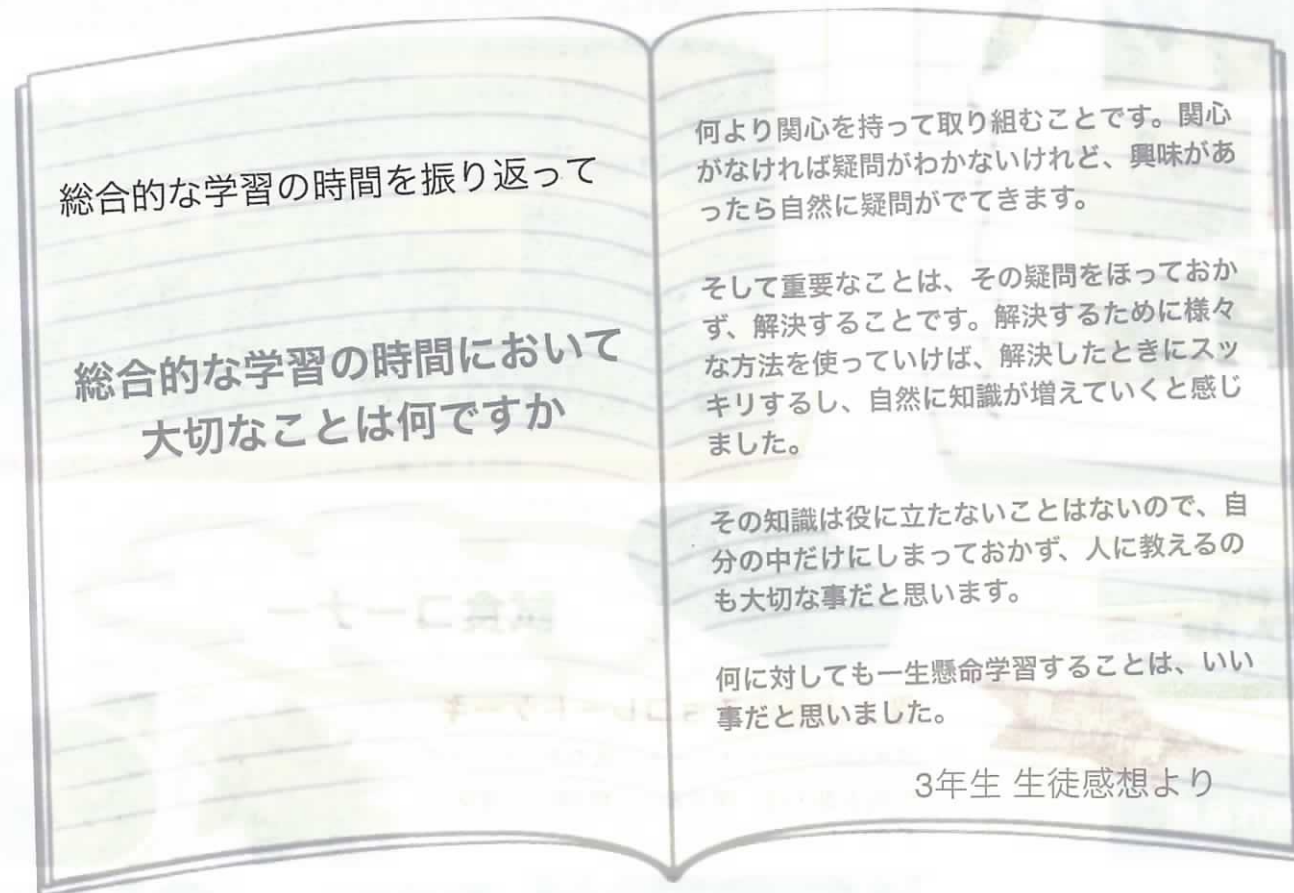 総合的な学習の時間を振り返って
総合的な学習の時間において
大切なことは何ですか
何より関心を持って取り組むことです。関心
がなければ疑問がわかないけれど、興味があ
ったら自然に疑問がでてきます。
そして重要なことは、その疑問をほっておか
ず、解決することです。解決するために様々
な方法を使っていけば、解決したときにスッ
キリするし、自然に知識が増えていくと感じ
ました。
その知識は役に立たないことはないので、自
分の中だけにしまっておかず、人に教えるの
も大切な事だと思います。
何に対しても一生懸命学習することは、いい
事だと思いました。
3年生 生徒感想より
試食コーナー